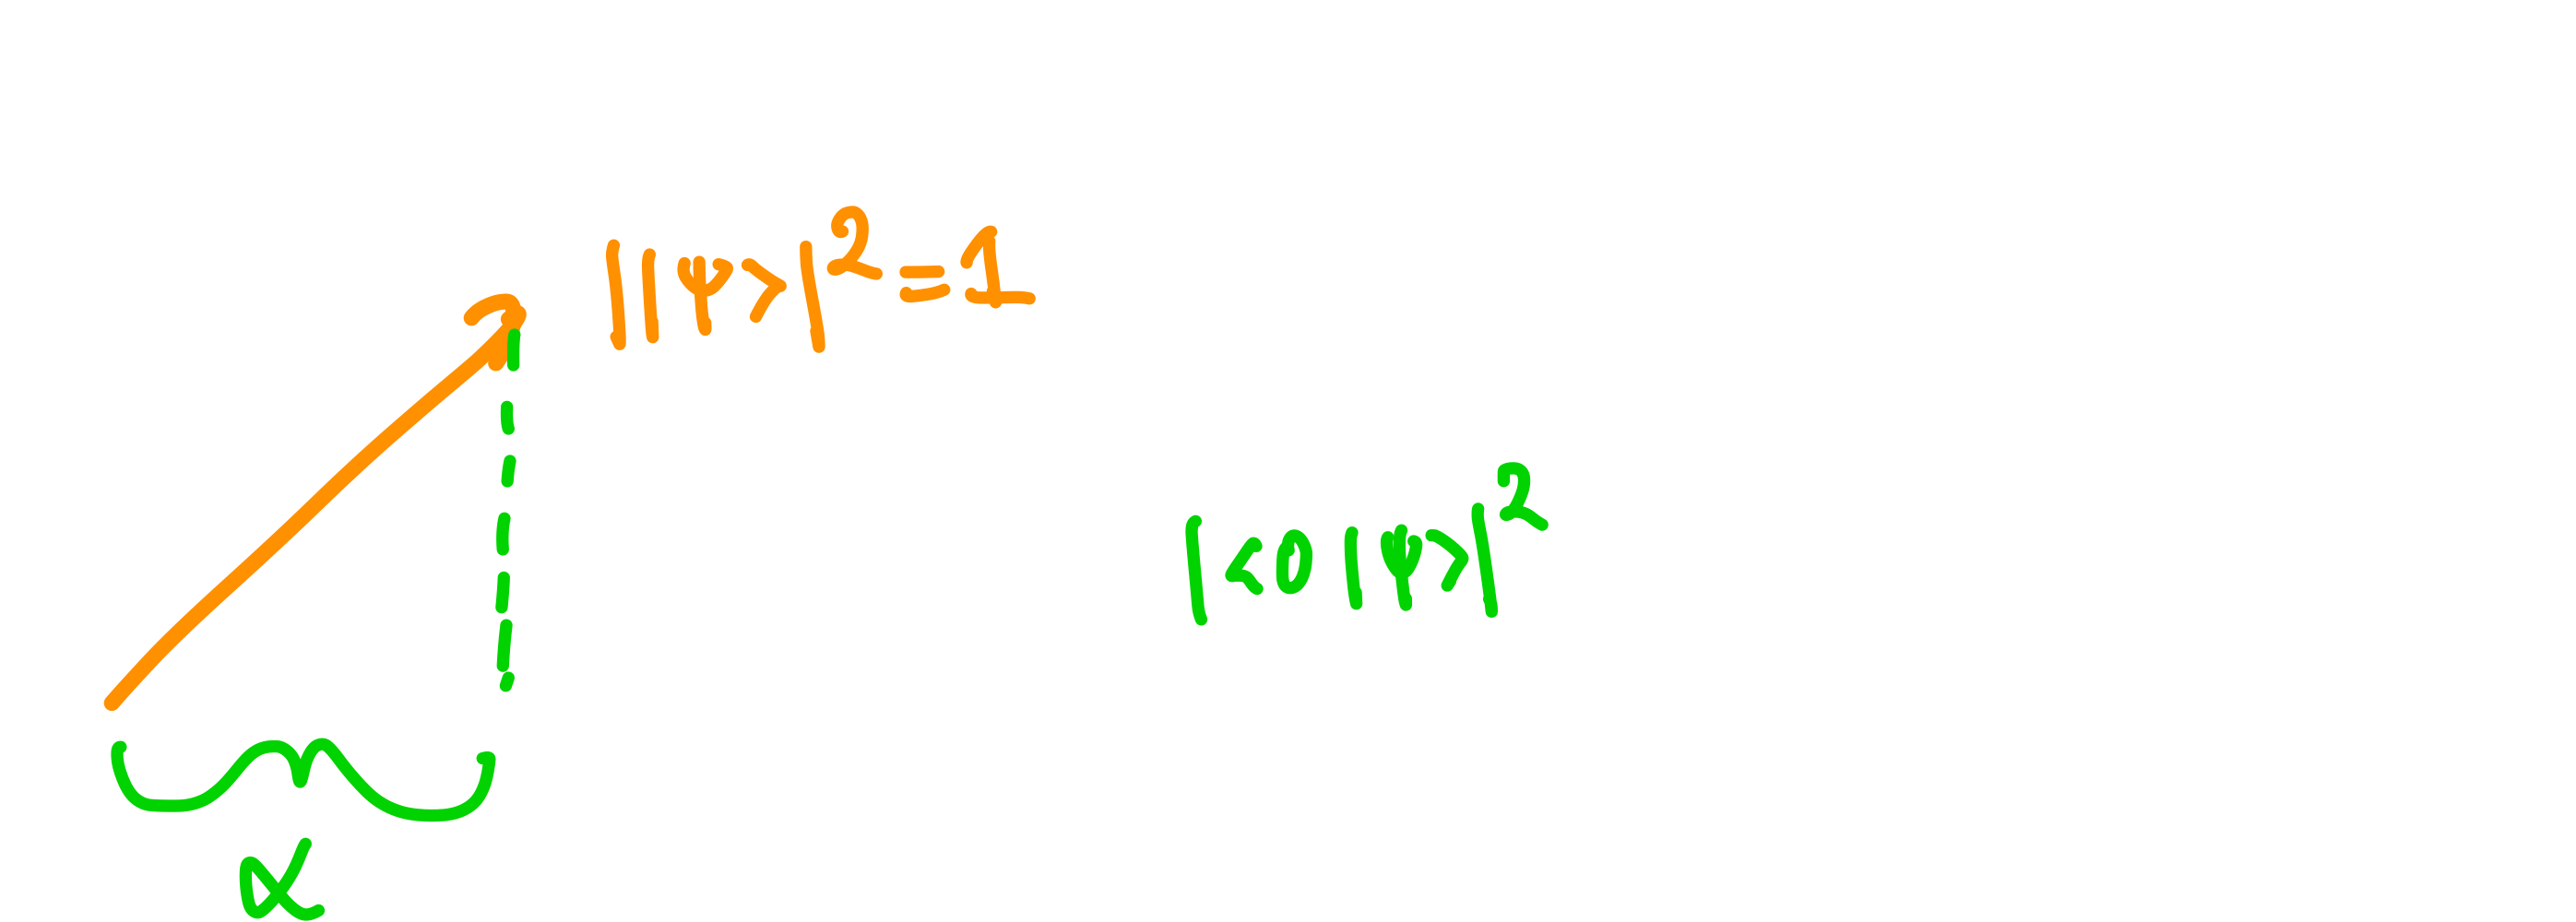 ||ψ>|²=1
|<0|ψ>|²
α